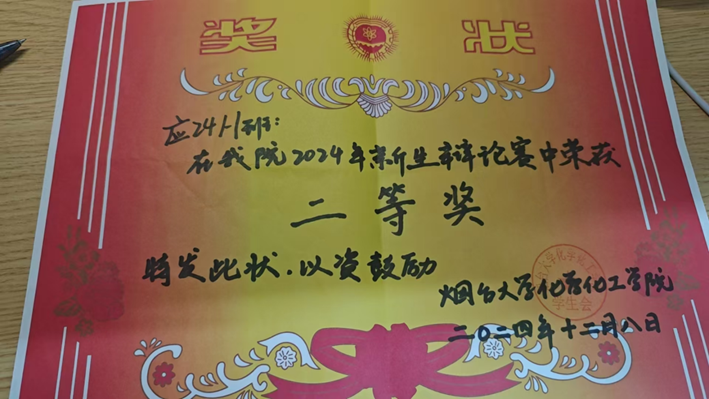 奖 状
应24-1班:
在我院2024年新生辩论赛中荣获
二等奖
特发此状,以资鼓励
烟台大学化学化工学院
学生会
二〇二四年十二月八日